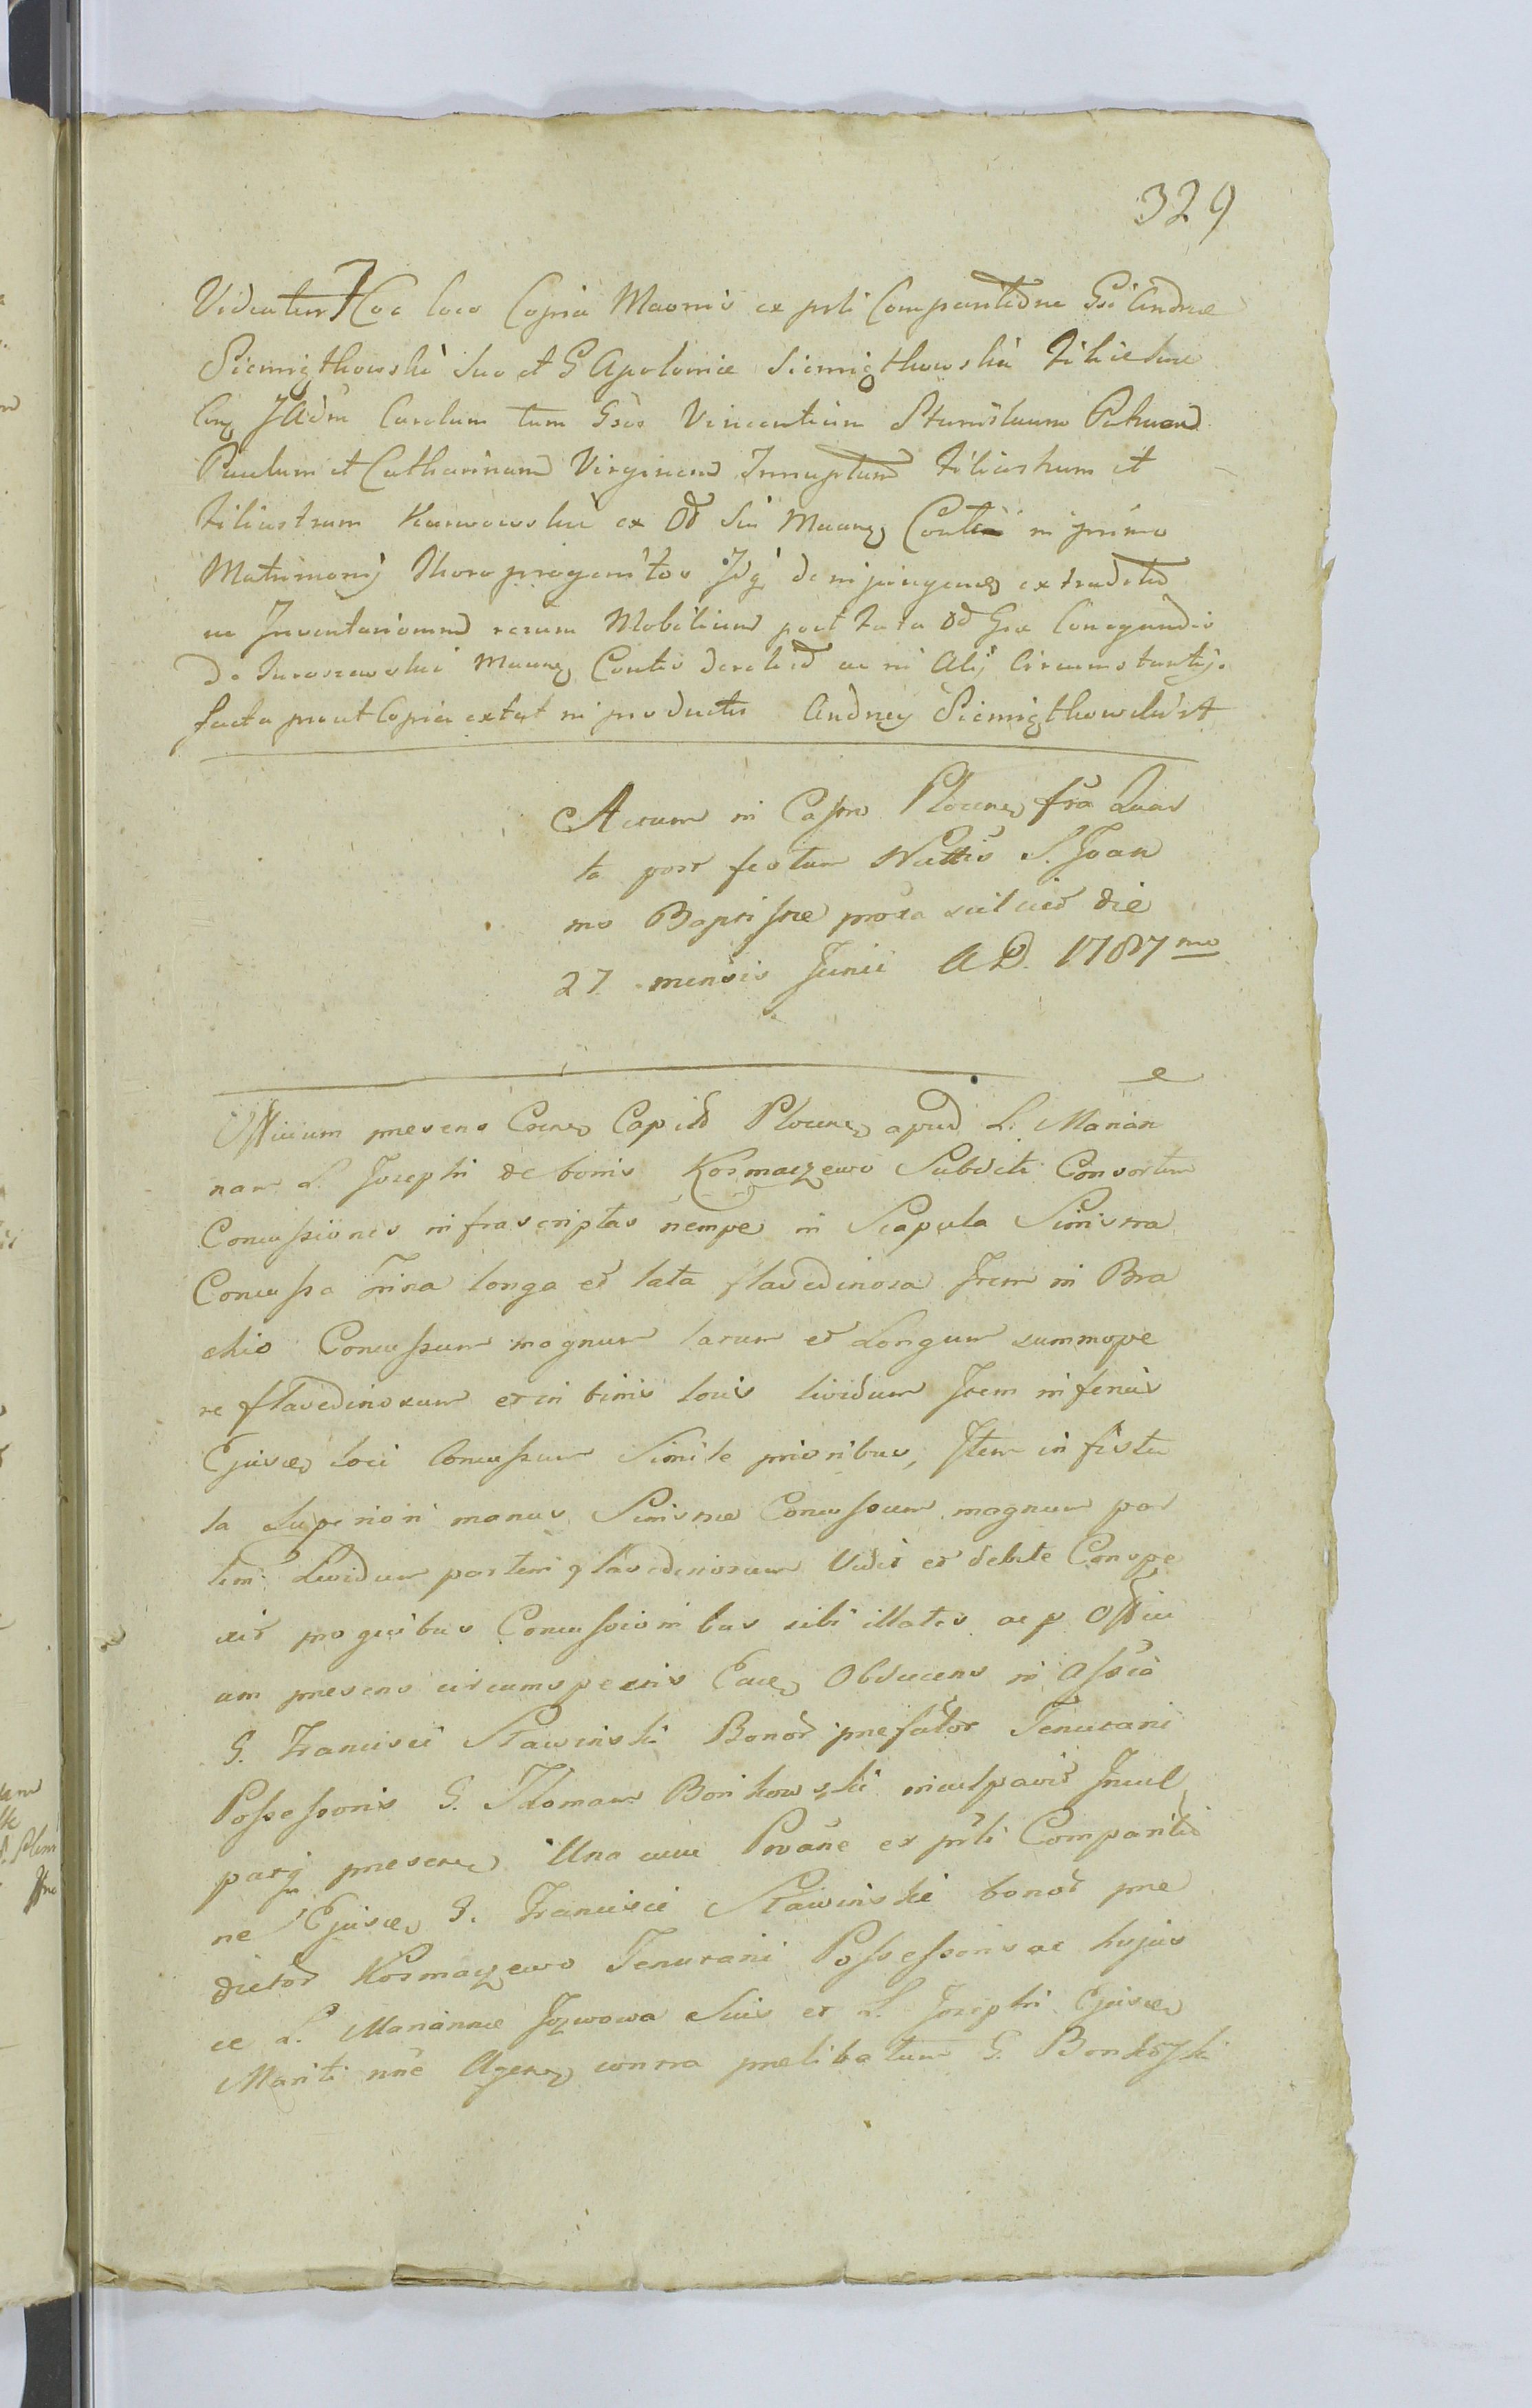 329
Videatur Hoc loco Copia Maonis ex prti Comparitione Gsi Andreæ
Siemiątkowski suo et G Apoloniæ Siemiątkowska filiæ suæ
Carolum tum Gsos Vincentium Stanislaum
Paulum et Catharinam Virginem Innuptam filiastrum et
filiastram Karwowskie ex Od Sui Contĩ in primo
Matrimonij thoro progenitos extradetĩ
ac Inventariomm rerum Mobilium post fata Od Gsæ Cunegundis
De Jaroszewskie Contis ac in Alij Circumstantij
facta prout Copia extat in productis Andrzej Siemiątkowski
Actum in Castro Plocen fria Quar
ta post festum Nattis S. Joan
nis Baptistæ proxa scilicet die
27 mensis Junii A D. 1787 mo
Officium presens Capitĩ Plocen apud L. Marian
nam L. Josephi de bonis Kosmaczewo Subditi Consortem
Concussiones infrascriptas nempe in Scapula Sinistra
Concussa trina longa et lata flavedinosa Item in Bra
chio Concussum magnum latum et Longum summope
re flavedinosum et in binis locis lividum Item inferius
Ejusd loci Concussum Simile prioribus, Item in fistu
la Superiori manus Sinistræ Concussum magnum par
tim Lividum partim flavedinosum Vidit et debite Conspe
xit pro quibus Concussionibus sibi illatis ac p Offici
um presens circumspectis Ead Obducens in Assia
G. Francisci Sławinski Bonor prefator Tenutarii
Possessoris G. Thomam Bonkowski inculpavit Incul
patq presen Una cum Provane ex prti Comparitio
ne Ejusd G. Francisci Sławinski bonor præ
dictor Kosmaczewo Tenutarii Possessoris ac hujus
ce L. Mariannæ Jozwowa Suis et L. Josephi Ejusd
Mariti nne Agen contra prelibatum G. Bonkowski